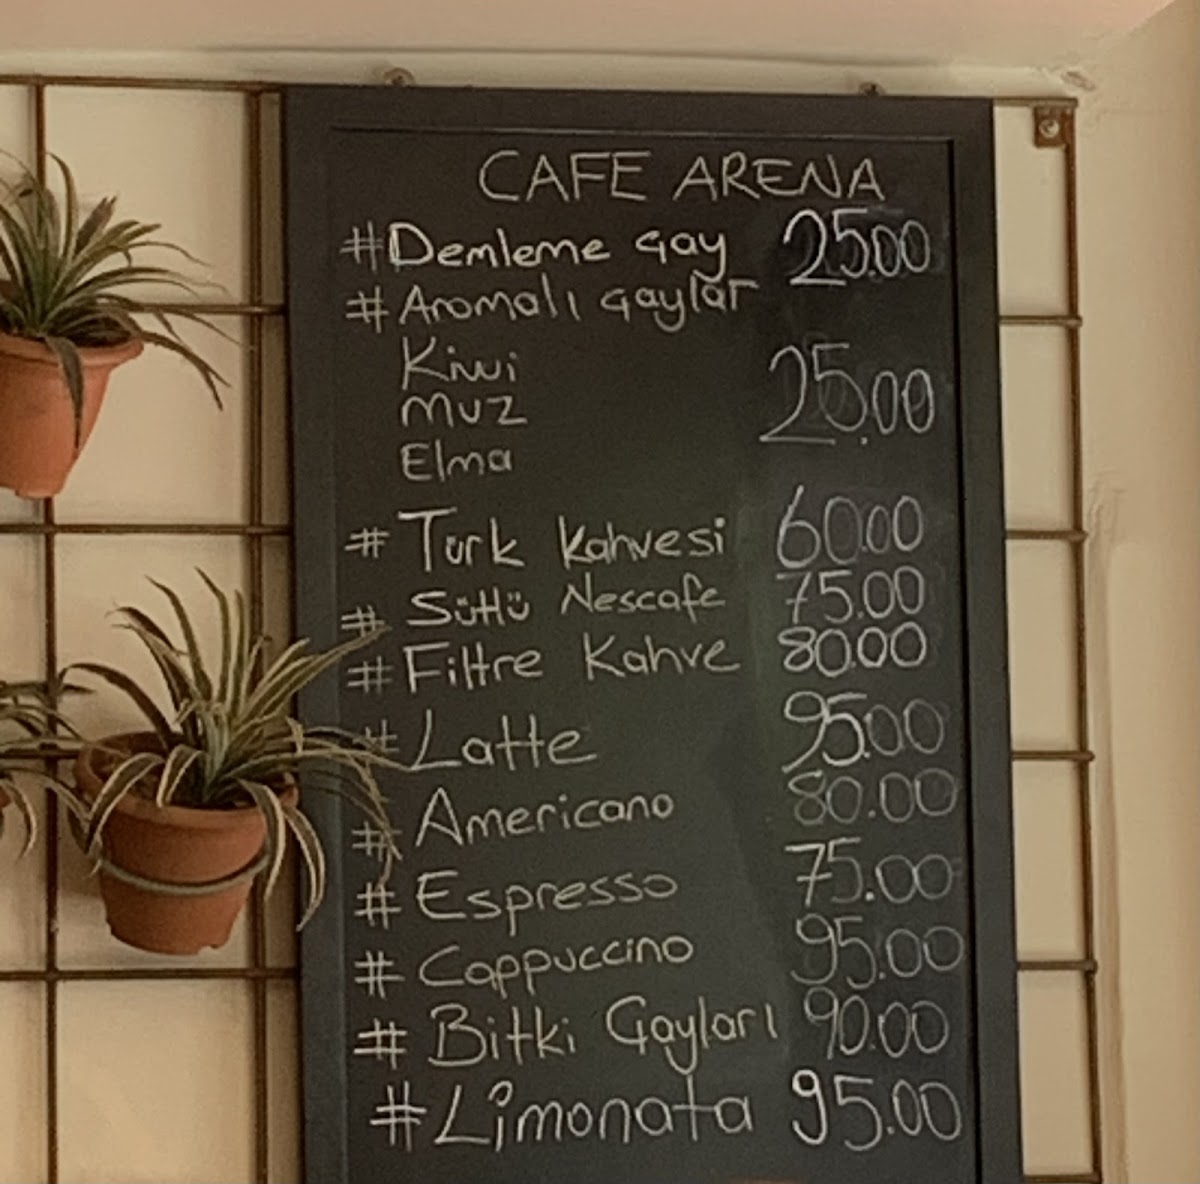 CAFE ARENA
#Demleme Çay 25.00
#Aromalı Çaylar
Kiwi
Muz 25.00
Elma
#Türk Kahvesi 60.00
#Sütlü Nescafe 75.00
#Filtre Kahve 80.00
#Latte 95.00
#Americano 80.00
#Espresso 75.00
#Cappuccino 95.00
#Bitki Çayları 90.00
#Limonata 95.00